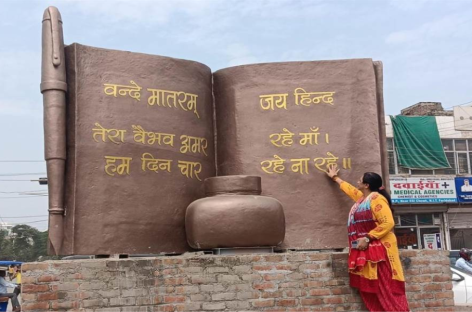 वन्दे मातरम्
तेरा वैभव अमर
हम दिन चार
जय हिन्द
रहे माँ।
रहे ना रहे॥
दवाईयाँ
MEDICAL AGENCIES